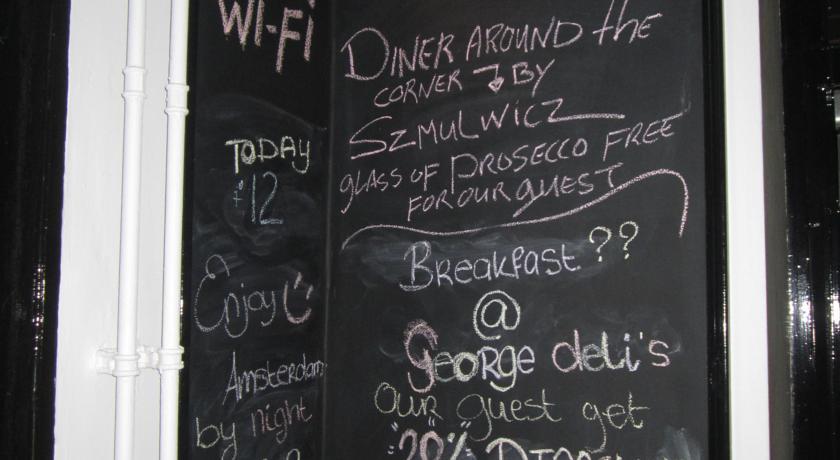 WI-FI
TODAY
€12
Enjoy
Amsterdam
by night
DINER AROUND the
CORNER BY
SZMULWICZ
GLASS OF PROSECCO FREE
FOR OUR GUEST
Breakfast ??
@
George deli's
our guest get
"20%"